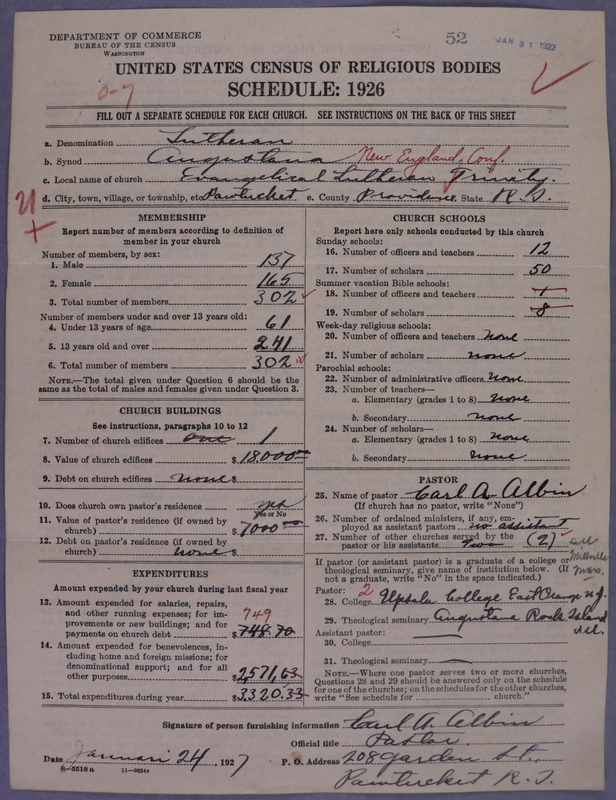 DEPARTMENT OF COMMERCE
BUREAU OF THE CENSUS
WASHINGTON
52
JAN 31 1927
UNITED STATES CENSUS OF RELIGIOUS BODIES
SCHEDULE: 1926
0-7
FILL OUT A SEPARATE SCHEDULE FOR EACH CHURCH. SEE INSTRUCTIONS ON THE BACK OF THIS SHEET
a. Denomination Lutheran
b. Synod Augustana New England. Conf.
c. Local name of church Evangelical Lutheran Trinity.
d. City, town, village, or township, etc. Pawtucket e. County Providence State R.I.
21
MEMBERSHIP
Report number of members according to definition of member in your church
Number of members, by sex:
1. Male 137
2. Female 165
3. Total number of members 302
Number of members under and over 13 years old:
4. Under 13 years of age 61
5. 13 years old and over 241
6. Total number of members 302
NOTE.—The total given under Question 6 should be the same as the total of males and females given under Question 3.
CHURCH BUILDINGS
See instructions, paragraphs 10 to 12
7. Number of church edifices one 1
8. Value of church edifices $18000.00
9. Debt on church edifices none $
10. Does church own pastor's residence yes
Yes or No
11. Value of pastor's residence (if owned by church) $7000.00
12. Debt on pastor's residence (if owned by church) none $
EXPENDITURES
Amount expended by your church during last fiscal year
13. Amount expended for salaries, repairs, and other running expenses; for improvements or new buildings; and for payments on church debt 749 $748.70
14. Amount expended for benevolences, including home and foreign missions; for denominational support; and for all other purposes $2571,63
15. Total expenditures during year $3320.33
CHURCH SCHOOLS
Report here only schools conducted by this church
Sunday schools:
16. Number of officers and teachers 12
17. Number of scholars 50
Summer vacation Bible schools:
18. Number of officers and teachers 1
19. Number of scholars 8
Week-day religious schools:
20. Number of officers and teachers none
21. Number of scholars none
Parochial schools:
22. Number of administrative officers none
23. Number of teachers—
a. Elementary (grades 1 to 8) none
b. Secondary none
24. Number of scholars—
a. Elementary (grades 1 to 8) none
b. Secondary none
PASTOR
25. Name of pastor Carl A. Albin
(If church has no pastor, write "None")
26. Number of ordained ministers, if any, employed as assistant pastors no assistant
27. Number of other churches served by the pastor or his assistants Two (2)
Millville
Mass.
If pastor (or assistant pastor) is a graduate of a college or theological seminary, give name of institution below. (If not a graduate, write "No" in the space indicated.)
Pastor: 2
28. College Upsala College East Orange N.J.
29. Theological seminary Augustana Rock Island Ill.
Assistant pastor:
30. College
31. Theological seminary
NOTE.—Where one pastor serves two or more churches, Questions 28 and 29 should be answered only on the schedule for one of the churches; on the schedules for the other churches, write "See schedule for church."
Signature of person furnishing information Carl A. Albin
Official title Pastor.
Date Januari 24, 1927 P. O. Address 208 Garden St.,
Pawtucket R.I.
8—5518 a 11—9054